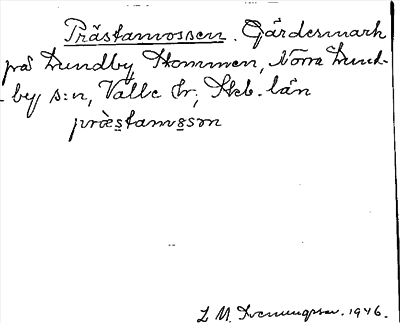 Prästamossen. Gärdesmark
på Lundby Stommen, Norra Lund-
by s:n, Valle hr; Skb. län
præ̀stamosən
L M Svenungsson. 1946.